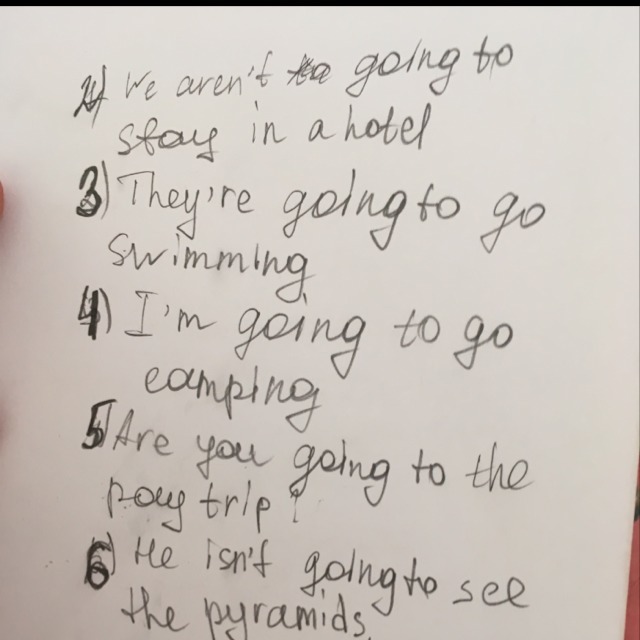 2) We aren't going to
stay in a hotel
3) They're going to go
swimming
4) I'm going to go
camping
5) Are you going to the
pay trip?
6) He isn't going to see
the pyramids.